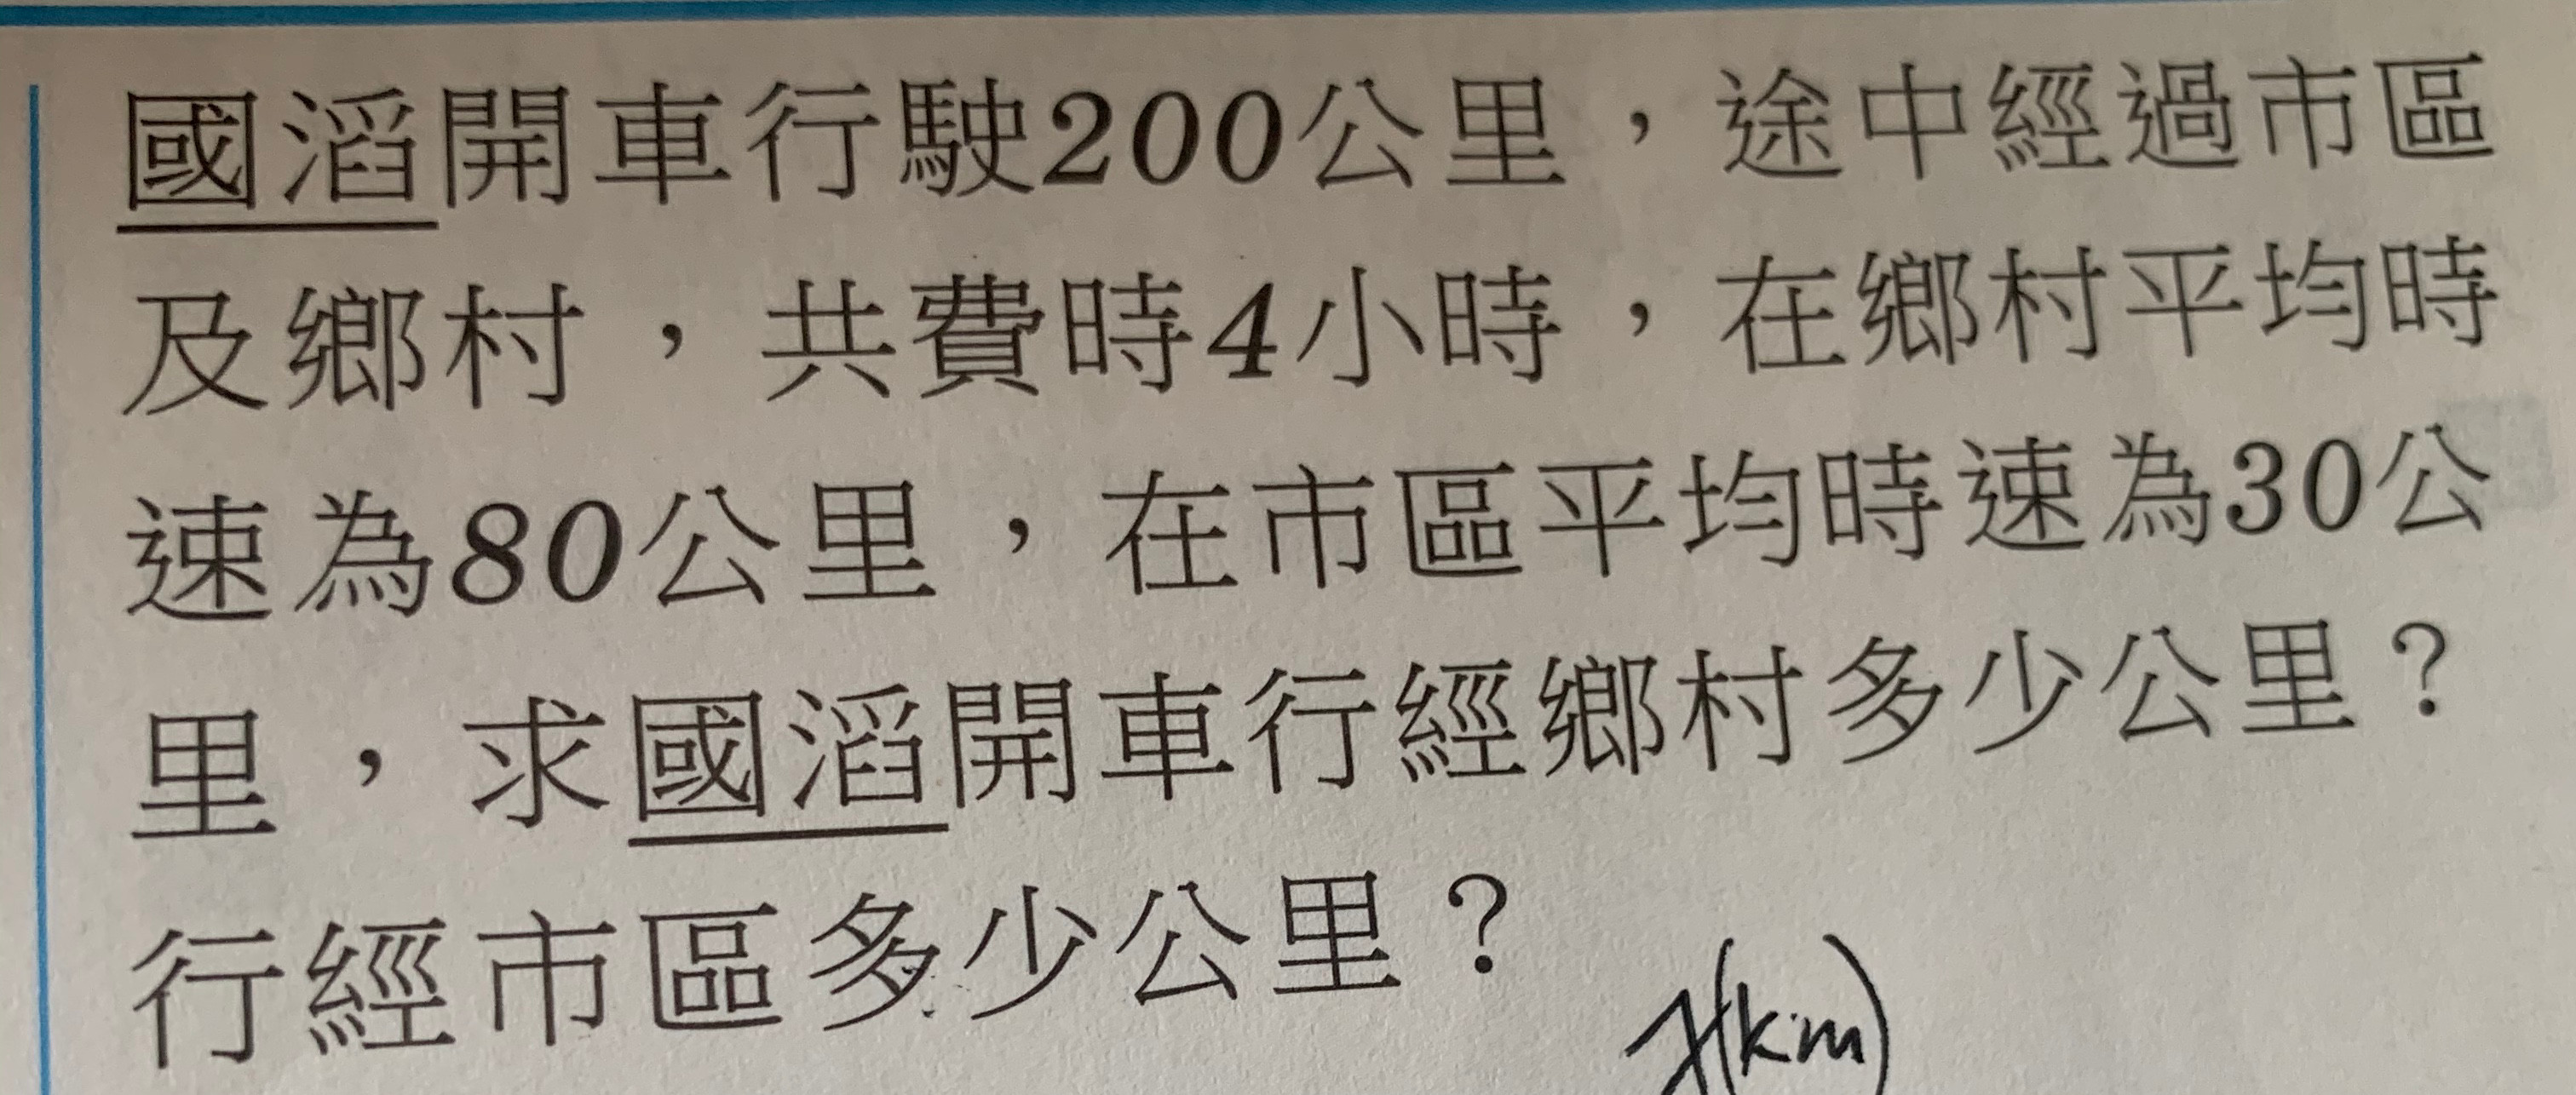 國滔開車行駛200公里，途中經過市區
及鄉村，共費時4小時，在鄉村平均時
速為80公里，在市區平均時速為30公
里，求國滔開車行經鄉村多少公里？
行經市區多少公里？
(km)